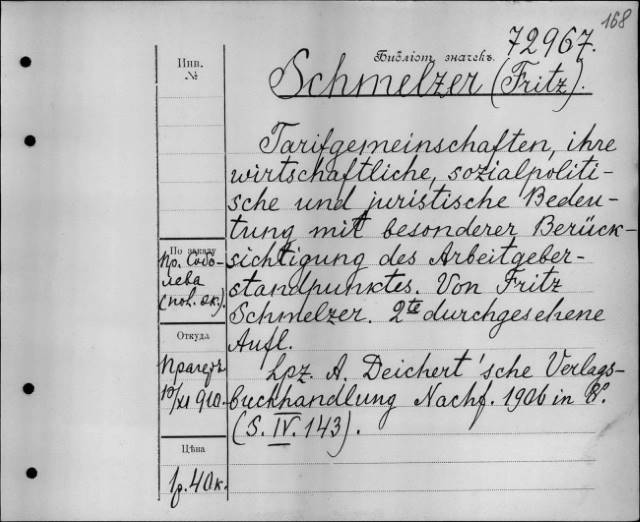 168
72967.
Библіот. значекъ.
Schmelzer (Fritz).
Инв.
№
Tarifgemeinschaften, ihre
wirtschaftliche, sozialpoliti-
sche und juristische Bedeu-
tung mit besonderer Berück-
sichtigung des Arbeitgeber-
standpunktes. Von Fritz
Schmelzer. 2te durchgesehene
Aufl.
Lpz. A. Deichert'sche Verlags-
buchhandlung Nachf. 1906 in 8º.
(S. IV. 143).
По заказу
Пр. Собо-
лева
(пол. эк.).
Откуда
Прагеръ
10/XI 910.
Цѣна
1р. 40к.